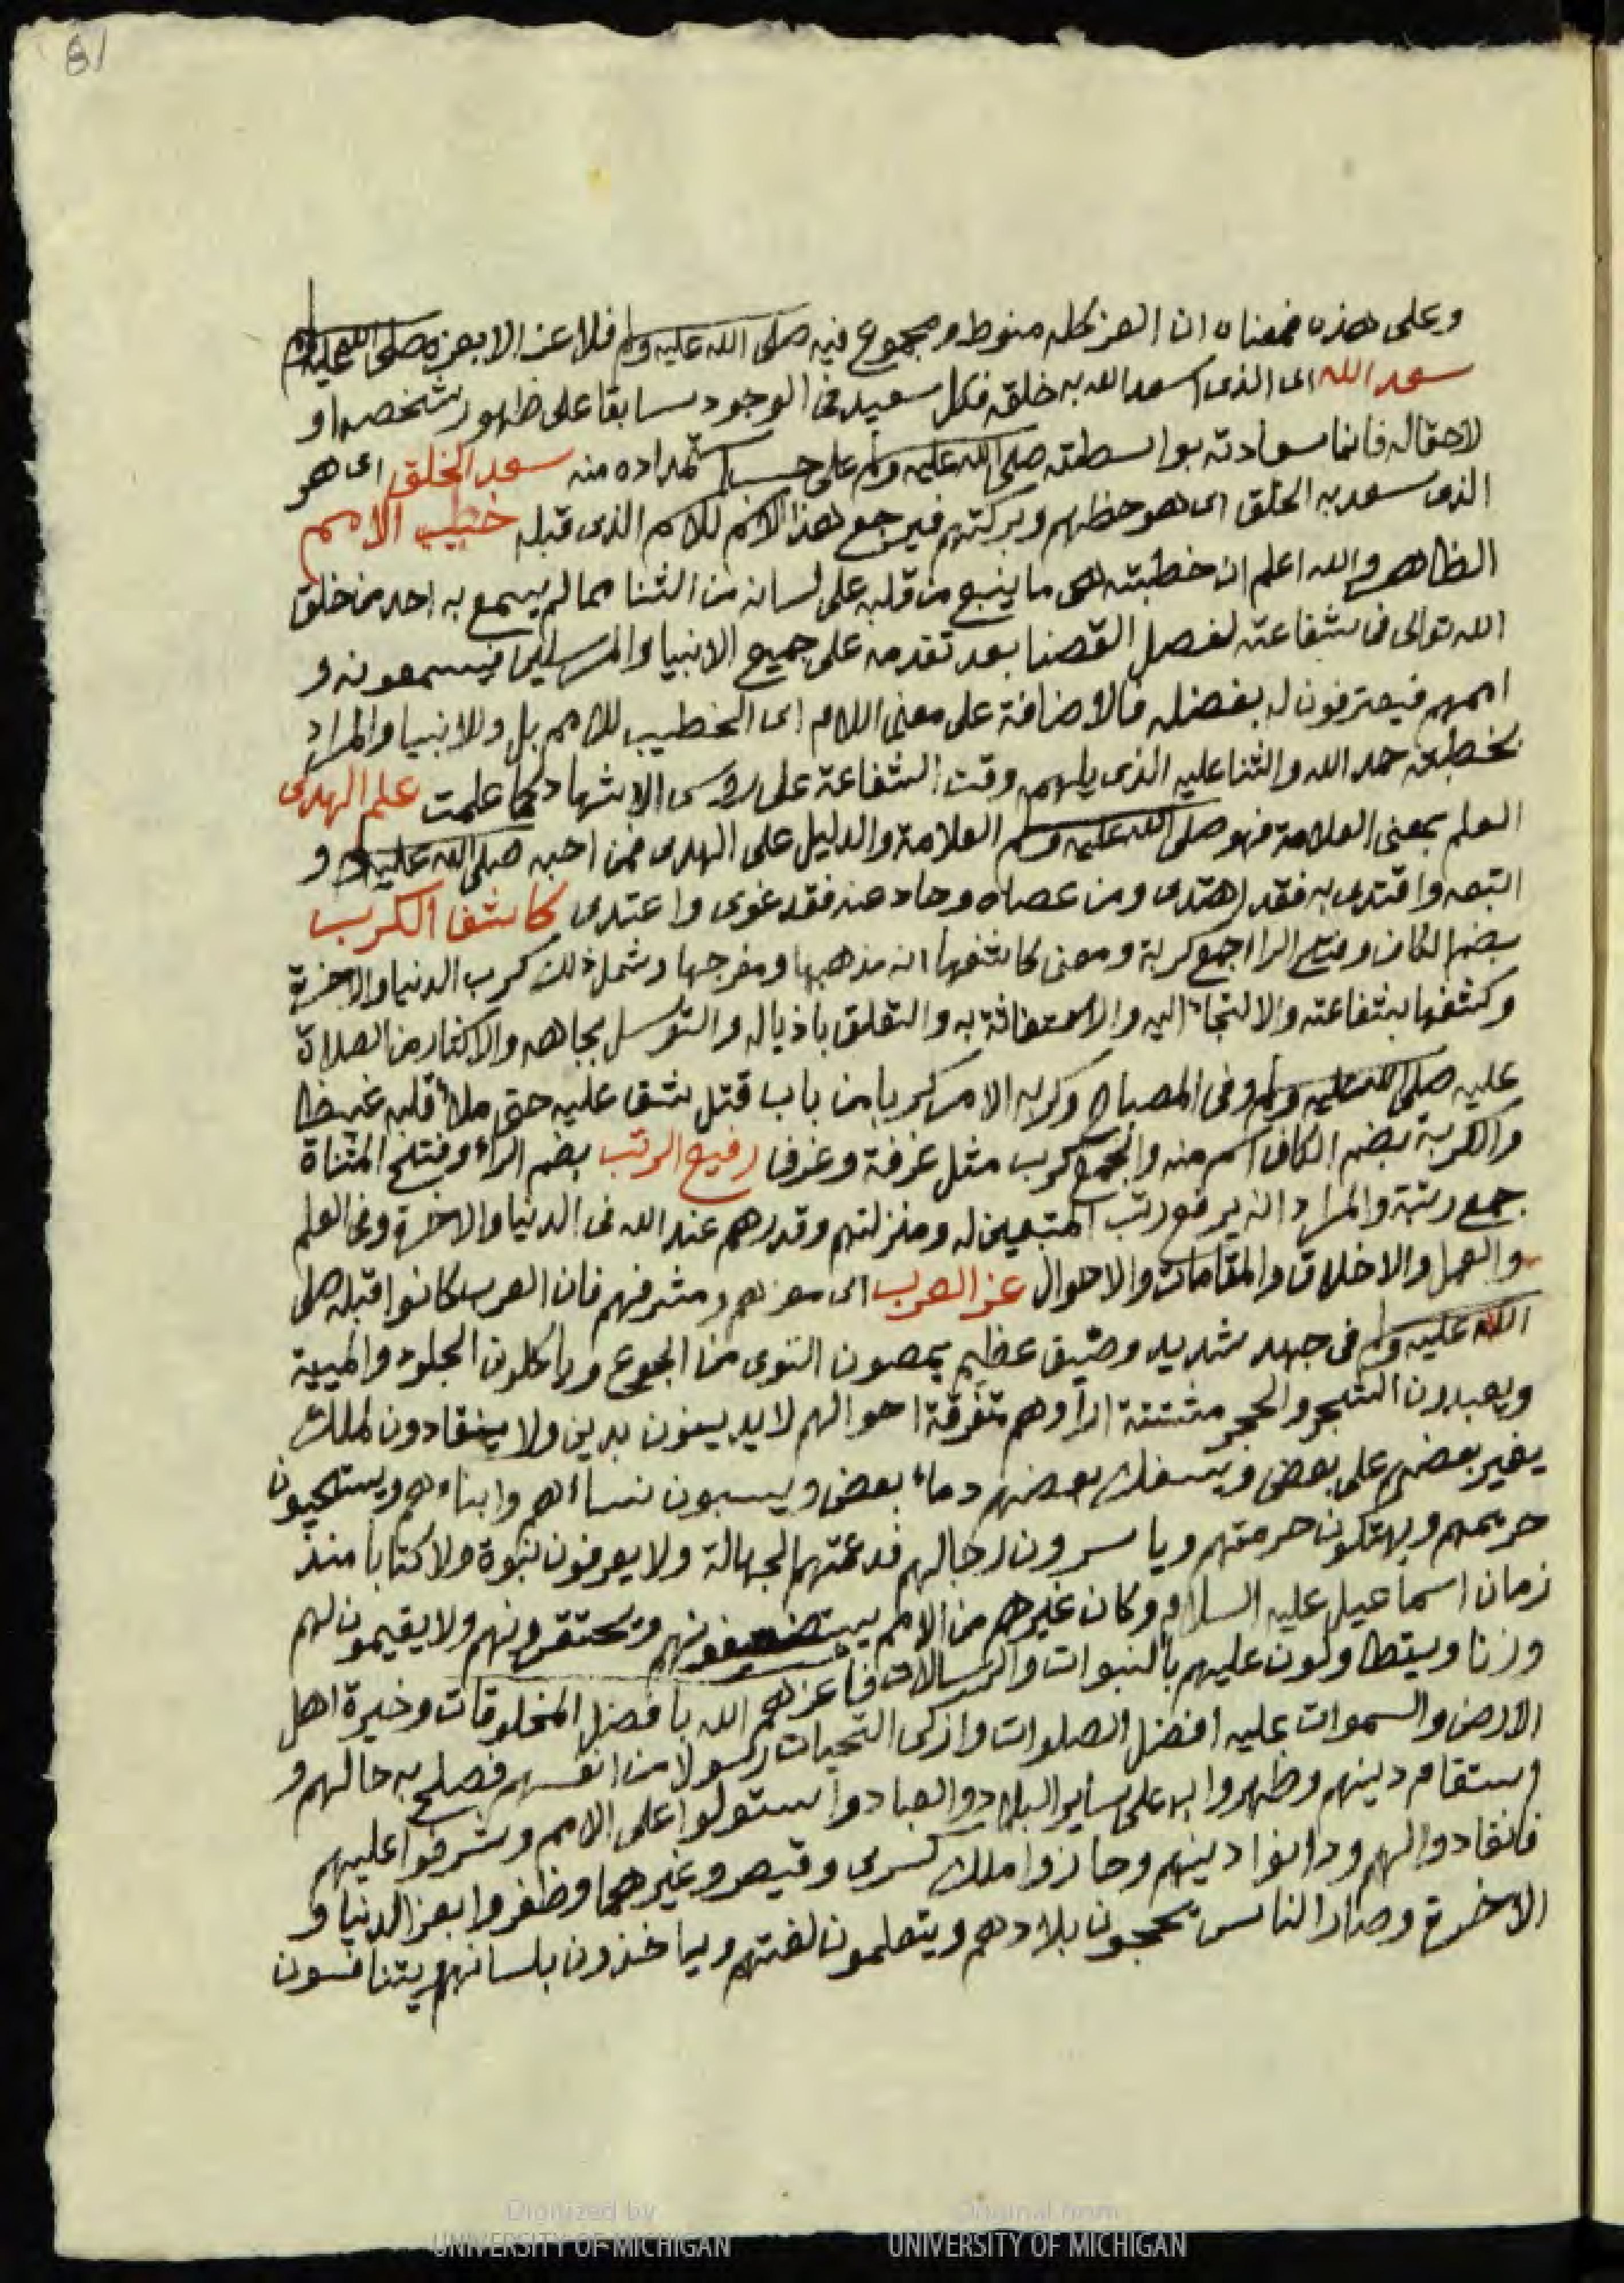 81
وعلى هذه فمعناه ان العز كله منوط ومجموع فيه صلى الله عليه وسلم فلا عز الا بعزه صلى الله عليه وسلم
سعد الله اى الذى اسعد الله به خلقه فكل سعيد فى الوجود سابقا على ظهور شخصه او
لاحقا له فانما سعادته بواسطته صلى الله عليه وسلم على حسب استمداده منه سعد الخلق اى هو
الذى سعد به الخلق اى هو حظهم وبركتهم فيرجع هذا الاسم للاسم الذى قبله خطيب الامم
الظاهر والله اعلم ان خطبته هى ما ينبع من قلبه على لسانه من الثنا مما لم يسمع به احد من خلق
الله تعالى فى شفاعته لفصل القضا بعد تقدمه على جميع الانبيا والمرسلين فيسمعونه و
اممهم فيعترفون له بفضله فالاضافة على معنى اللام اى الخطيب للامم بل وللانبيا والمراد
بخطبته حمد الله والثنا عليه الذى يلهمه وقت الشفاعة على رؤس الاشهاد كما علمت علم الهدى
العلم بمعنى العلامة فهو صلى الله عليه وسلم العلامة والدليل على الهدى فمن احبه صلى الله عليه وسلم و
اتبعه واقتدى به فقد اهتدى ومن عصاه وحاد عنه فقد غوى واعتدى كاشف الكرب
بضم الكاف وفتح الرا جمع كربة ومعنى كاشفها انه مذهبها ومفرجها وشمل ذلك كرب الدنيا والاخرة
وكشفها بشفاعته والالتجاء اليه والاستغاثة به والتعلق باذياله والتوسل بجاهه والاكثار من الصلاة
عليه صلى الله عليه وسلم وفى المصباح وكربه الامر كربا من باب قتل شق عليه حتى ملأ قلبه غيظا
والكربة بضم الكاف اسم منه والجمع كرب مثل غرفة وغرف رفيع الرتب بضم الراء وفتح المثناة
جمع رتبة والمراد انه يرفع رتب المتبعين له ومنزلتهم وقدرهم عند الله فى الدنيا والاخرة وفى العلم
والعمل والاخلاق والمقامات والاحوال عز العرب اى معزهم ومشرفهم فان العرب كانوا قبله صلى
الله عليه وسلم فى جهد شديد وضيق عظيم يمصون النوى من الجوع وياكلون الجلود والميتة
ويعبدون الشجر والحجر مشتتة اراوهم متفرقة احوالهم لا يدينون بدين ولا ينقادون لملك
يغير بعضهم على بعض ويسفك بعضهم دماء بعض ويسبون نساءهم وابناءهم ويستحيون
حريمهم ويهتكون حرمتهم وياسرون رجالهم قد عمتهم الجهالة ولا يعرفون نبوة ولا كتابا منذ
زمان اسماعيل عليه السلام وكان غيرهم من الامم يستضعفونهم وتحتقرونهم ولا يقيمون لهم
وزنا ويتطاولون عليهم بالنبوات والرسالات فاعزهم الله بافضل المخلوقات وخيرة اهل
الارض والسموات عليه افضل الصلوات وازكى التحيات رسولا من انفسهم فصلح به حالهم و
استقام دينهم وظهروا به على سائر البلاد والعباد واستولوا على الامم وشرفوا عليهم
فانقادوا لهم ودانوا دينهم وحازوا ملك كسرى وقيصر وغيرهما وظفروا بعز الدنيا و
الاخرة وصار الناس يحجون بلادهم ويتعلمون لغتهم وياخذون بلسانهم ويتنافسون
Digitized by
UNIVERSITY OF MICHIGAN
Original from
UNIVERSITY OF MICHIGAN